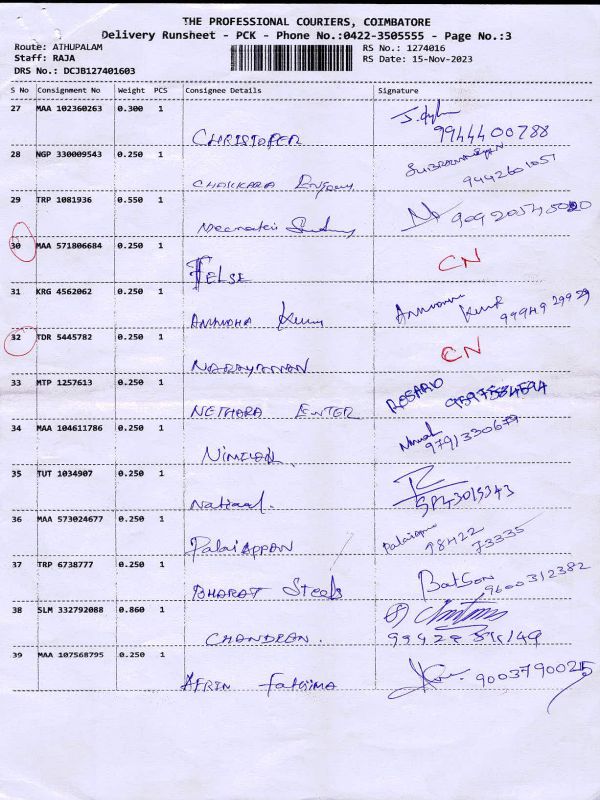 THE PROFESSIONAL COURIERS, COIMBATORE
Delivery Runsheet - PCK - Phone No.:0422-3505555 - Page No.:3
Route: ATHUPALAM RS No.: 1274016
Staff: RAJA RS Date: 15-Nov-2023
DRS No.: DCJB127401603
S No Consignment No Weight PCS Consignee Details Signature
27 MAA 102360263 0.300 1
CHRISTOPER 9944400788
28 NGP 330009543 0.250 1
9442601057
29 TRP 1081936 0.550 1
30 MAA 571806684 0.250 1 CN
FELSE
31 KRG 4562062 0.250 1
99949 29929
32 TDR 5445782 0.250 1 CN
NARAYANAN
33 MTP 1257613 0.250 1 ROSARIO
NETHARA ENTER
34 MAA 104611786 0.250 1
9791330679
35 TUT 1034907 0.250 1
36 MAA 573024677 0.250 1
PalaiAppan 98422 73335
37 TRP 6738777 0.250 1
BHARAT Steels 9600312382
38 SLM 332792088 0.860 1
CHANDRAN.
39 MAA 107568795 0.250 1
AFRIN Fathima 9003790025